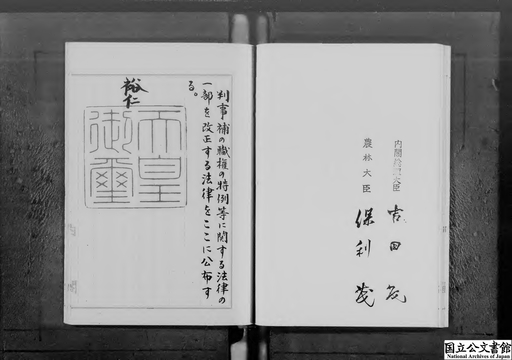 内閣総理大臣 吉田茂
農林大臣 保利茂
判事補の職権の特例等に関する法律の
一部を改正する法律をここに公布す
る。
裕仁
天皇
御璽
国立公文書館
National Archives of Japan